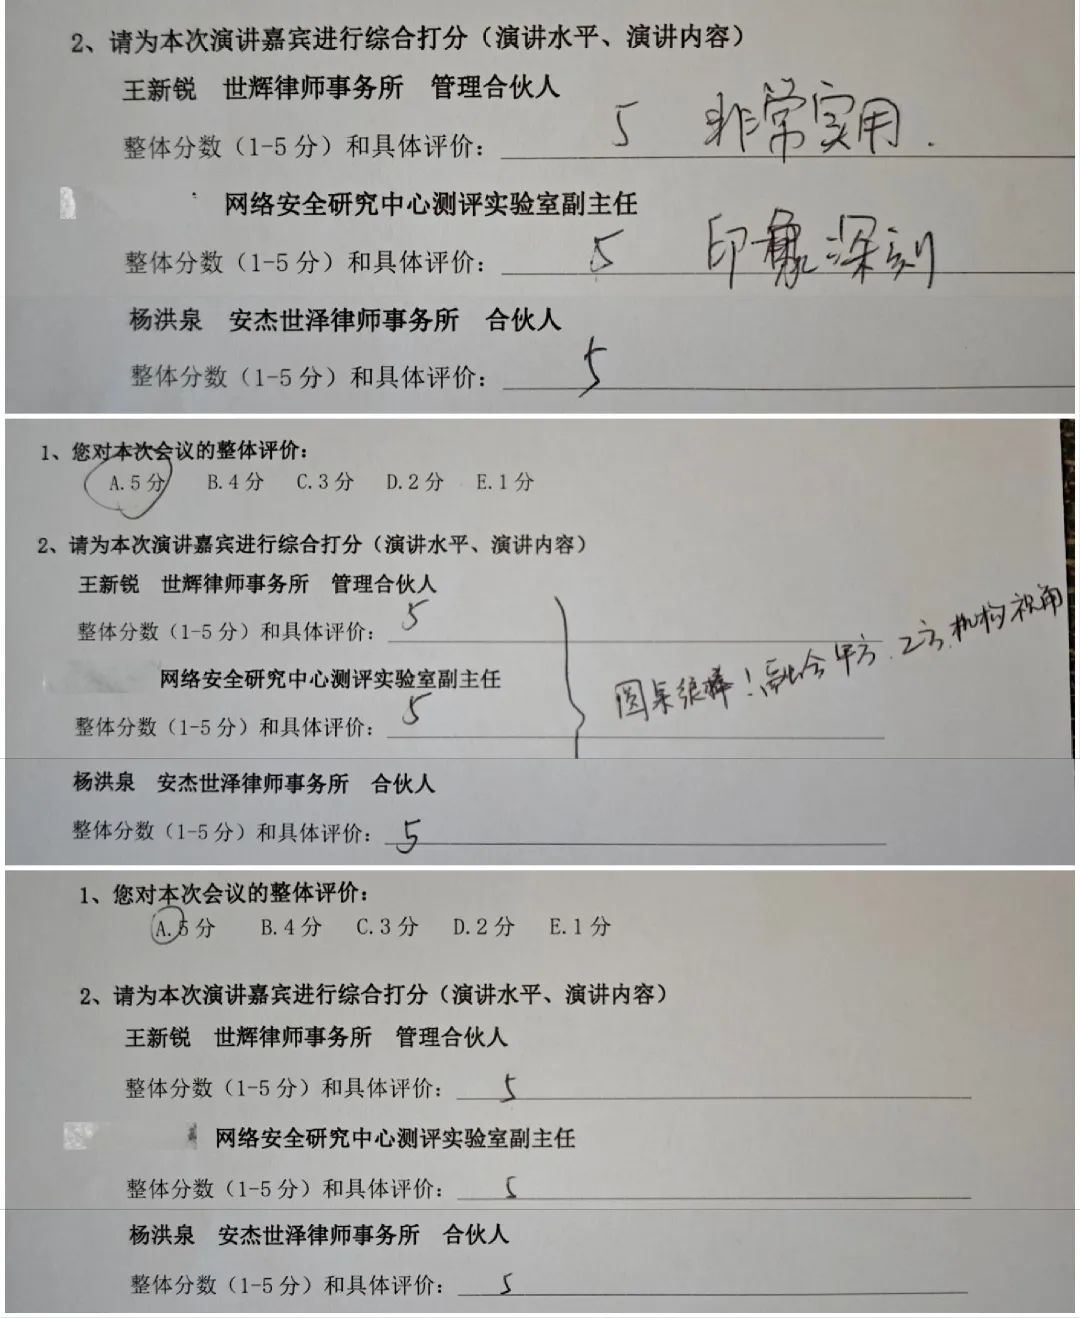 2、请为本次演讲嘉宾进行综合打分（演讲水平、演讲内容）
王新锐 世辉律师事务所 管理合伙人
整体分数（1-5 分）和具体评价： 5 非常实用.
网络安全研究中心测评实验室副主任
整体分数（1-5 分）和具体评价： 5 印象深刻
杨洪泉 安杰世泽律师事务所 合伙人
整体分数（1-5 分）和具体评价： 5
1、您对本次会议的整体评价：
A.5 分 B.4 分 C.3 分 D.2 分 E.1 分
2、请为本次演讲嘉宾进行综合打分（演讲水平、演讲内容）
王新锐 世辉律师事务所 管理合伙人
整体分数（1-5 分）和具体评价： 5
圆桌很棒！融合甲方、乙方、机构视角
网络安全研究中心测评实验室副主任
整体分数（1-5 分）和具体评价： 5
杨洪泉 安杰世泽律师事务所 合伙人
整体分数（1-5 分）和具体评价： 5
1、您对本次会议的整体评价：
A.5 分 B.4 分 C.3 分 D.2 分 E.1 分
2、请为本次演讲嘉宾进行综合打分（演讲水平、演讲内容）
王新锐 世辉律师事务所 管理合伙人
整体分数（1-5 分）和具体评价： 5
网络安全研究中心测评实验室副主任
整体分数（1-5 分）和具体评价： 5
杨洪泉 安杰世泽律师事务所 合伙人
整体分数（1-5 分）和具体评价： 5